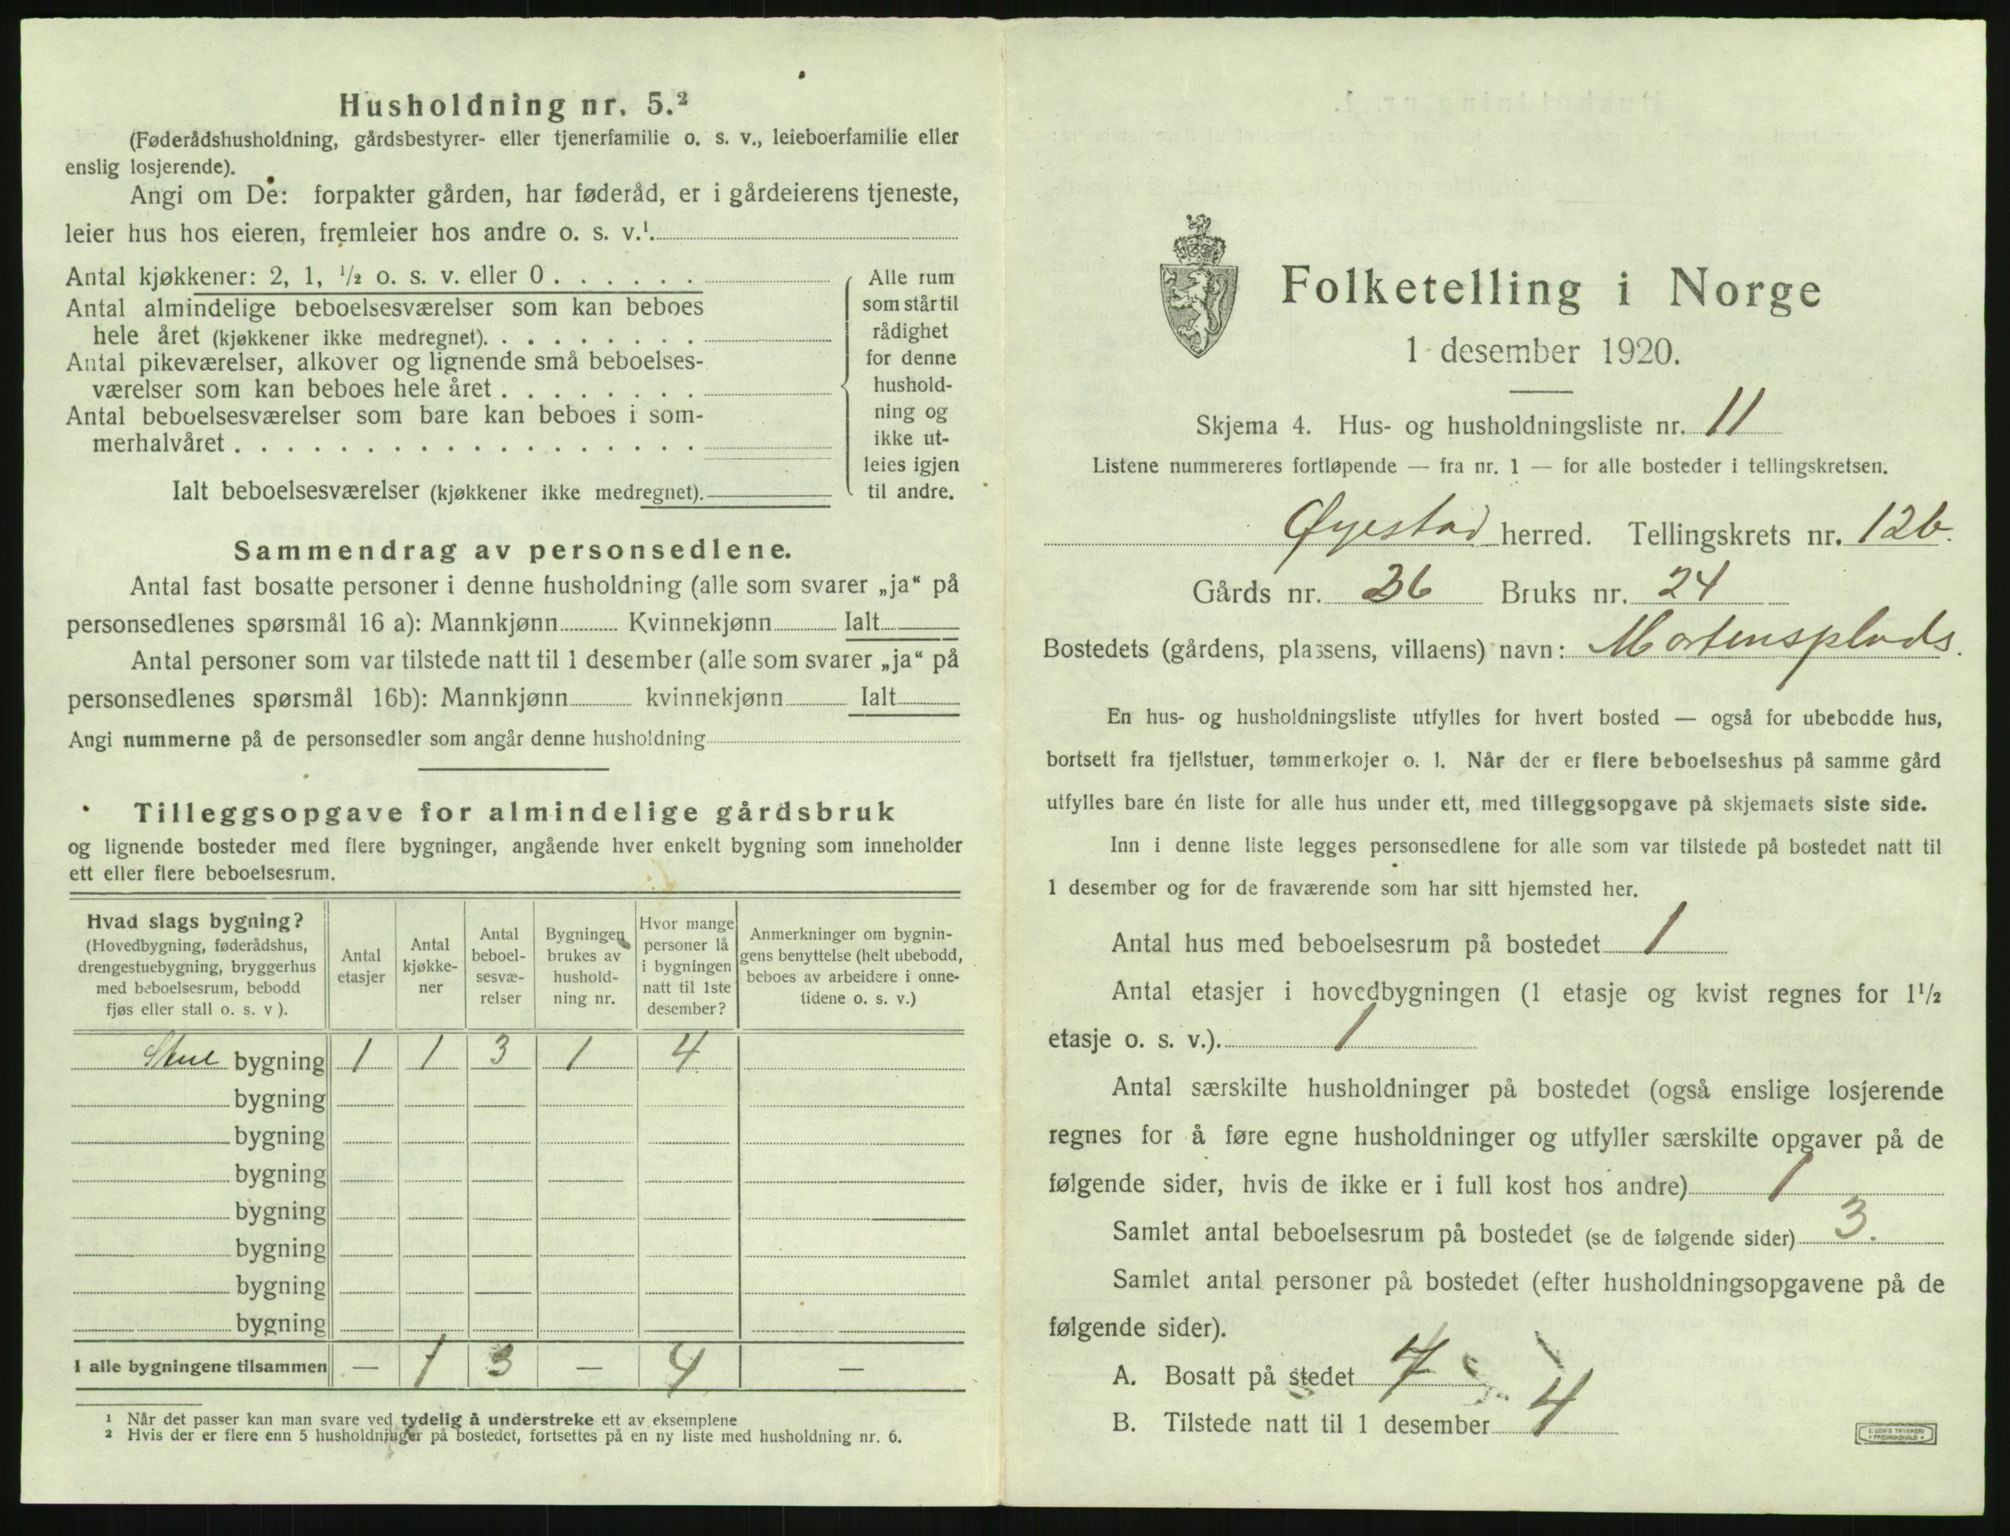 Husholdning nr. 5.²
(Føderådshusholdning, gårdsbestyrer- eller tjenerfamilie o. s. v., leieboerfamilie eller
enslig losjerende).
Angi om De: forpakter gården, har føderåd, er i gårdeierens tjeneste,
leier hus hos eieren, fremleier hos andre o. s. v.¹
Antal kjøkkener: 2, 1, ½ o. s. v. eller 0 . . . . . .
Antal almindelige beboelsesværelser som kan beboes
hele året (kjøkkener ikke medregnet). . . . . . . . .
Antal pikeværelser, alkover og lignende små beboelses-
værelser som kan beboes hele året . . . . . . . .
Antal beboelsesværelser som bare kan beboes i som-
merhalvåret . . . . . . . . . . . . . . . . . .
Ialt beboelsesværelser (kjøkkener ikke medregnet).
Alle rum
som står til
rådighet
for denne
hushold-
ning og
ikke ut-
leies igjen
til andre.
Sammendrag av personsedlene.
Antal fast bosatte personer i denne husholdning (alle som svarer „ja“ på
personsedlenes spørsmål 16 a): Mannkjønn Kvinnekjønn Ialt
Antal personer som var tilstede natt til 1 desember (alle som svarer „ja“ på
personsedlenes spørsmål 16b): Mannkjønn kvinnekjønn Ialt
Angi nummerne på de personsedler som angår denne husholdning
Tilleggsopgave for almindelige gårdsbruk
og lignende bosteder med flere bygninger, angående hver enkelt bygning som inneholder
ett eller flere beboelsesrum.
Hvad slags bygning?
(Hovedbygning, føderådshus,
drengestuebygning, bryggerhus
med beboelsesrum, bebodd
fjøs eller stall o. s. v ).
Antal
etasjer
Antal
kjøkke-
ner
Antal
beboel-
sesvæ-
relser
Bygningen
brukes av
hushold-
ning nr.
Hvor mange
personer lå
i bygningen
natt til 1ste
desember?
Anmerkninger om bygnin-
gens benyttelse (helt ubebodd,
beboes av arbeidere i onne-
tidene o. s. v.)
bygning 1 1 3 1 4
bygning
bygning
bygning
bygning
bygning
bygning
bygning
I alle bygningene tilsammen — 1 3 — 4 —
¹ Når det passer kan man svare ved tydelig å understreke ett av eksemplene
² Hvis der er flere enn 5 husholdninger på bostedet, fortsettes på en ny liste med husholdning nr. 6.
Folketelling i Norge
1 desember 1920.
Skjema 4. Hus- og husholdningsliste nr. 11
Listene nummereres fortløpende — fra nr. 1 — for alle bosteder i tellingskretsen.
Øyestad herred. Tellingskrets nr. 12b.
Gårds nr. 36 Bruks nr. 24
Bostedets (gårdens, plassens, villaens) navn: Mortensplads.
En hus- og husholdningsliste utfylles for hvert bosted — også for ubebodde hus,
bortsett fra fjellstuer, tømmerkojer o. l. Når der er flere beboelseshus på samme gård
utfylles bare én liste for alle hus under ett, med tilleggsopgave på skjemaets siste side.
Inn i denne liste legges personsedlene for alle som var tilstede på bostedet natt til
1 desember og for de fraværende som har sitt hjemsted her.
Antal hus med beboelsesrum på bostedet 1
Antal etasjer i hovedbygningen (1 etasje og kvist regnes for 1½
etasje o. s. v.). 1
Antal særskilte husholdninger på bostedet (også enslige losjerende
regnes for å føre egne husholdninger og utfyller særskilte opgaver på de
følgende sider, hvis de ikke er i full kost hos andre) 1
Samlet antal beboelsesrum på bostedet (se de følgende sider) 3.
Samlet antal personer på bostedet (efter husholdningsopgavene på de
følgende sider).
A. Bosatt på stedet
B. Tilstede natt til 1 desember 4